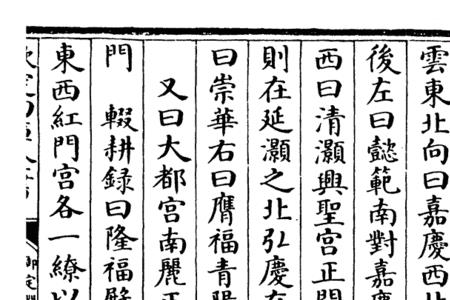 雲東北向曰嘉慶西北
後左曰懿範南對嘉慶
西曰清灝興聖宮正門
則在延灝之北弘慶在
曰崇華右曰膺福青陽
又曰大都宮南麗正
門　輟耕録曰隆福殿
東西紅門宫各一繚以